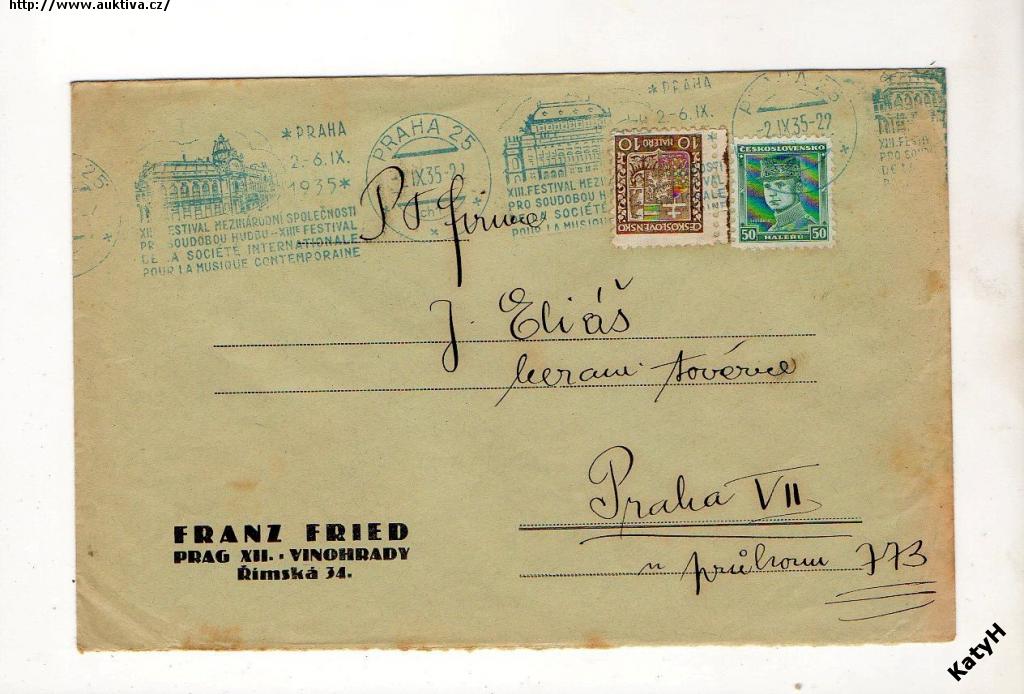 http://www.auktiva.cz/
*PRAHA
2.-6. IX.
1935*
XIII. FESTIVAL MEZINÁRODNÍ SPOLEČNOSTI
PRO SOUDOBOU HUDBU - XIIIE FESTIVAL
DE LA SOCIÉTÉ INTERNATIONALE
POUR LA MUSIQUE CONTEMPORAINE
PRAHA 25
2.IX35-22
*PRAHA
2-6.IX.
XIII. FESTIVAL MEZI
PRO SOUDOBOU
DE LA SOCIÉTÉ
POUR LA MUSIQUE
10 HALÉŘŮ 10
ČESKOSLOVENSKO
PRAHA 25
-2.IX35-22
ČESKOSLOVENSKO
50 HALÉŘŮ 50
25
XIII. FESTIV
PRO SOUDO
DE LA
P. T. firma
J. Eliáš
továrna
Praha VII
u průhonu 773
FRANZ FRIED
PRAG XII. · VINOHRADY
Římská 34.
KatyH